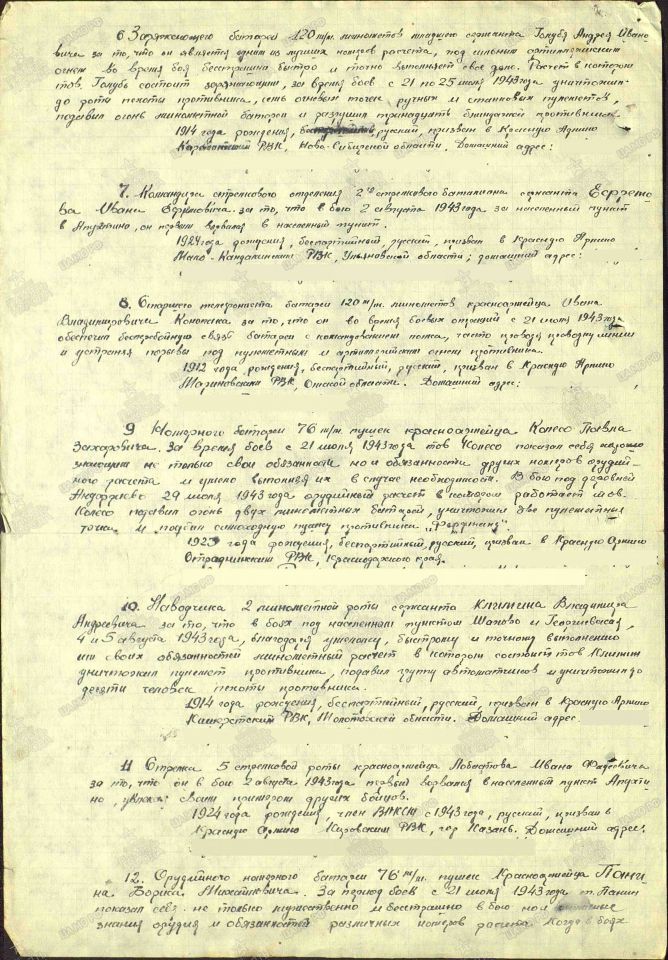 6 Заряжающего батареи 120 т/т. минометов младшего сержанта Голубь Андрея Ивано
вича за то, что он является одним из лучших номеров расчета, под сильным артиллерийским
огнем во время боя бесстрашно быстро и точно выполняет свое дело. Расчет в котором
тов. Голубь состоит заряжающим, за время боев с 21 по 25 июля 1943 года уничтожил
до роты пехоты противника, семь огневых точек ручных и станковых пулеметов,
подавил огонь минометной батареи и разрушил тринадцать блиндажей противника.
1914 года рождения, русский, призван в Красную Армию
РВК, Ново-Сибирской области. Домашний адрес:
7. Командира стрелкового отделения 2го стрелкового баталиона сержанта
Ивана за то, что в бою 2 августа 1943 года за населенный пункт
он первым ворвался в населенный пункт.
1924 года рождения, беспартийный, русский, призван в Красную Армию
Мало-Кандалинским РВК, Ульяновской области; домашний адрес:
8. Старшего телефониста батареи 120 т/т. минометов красноармейца Ивана
Владимировича за то, что он во время боевых операций с 21 июля 1943 года
обеспечил бесперебойную связь батареи с командованием полка, часто проводя проводку линии
и устраняя порывы под пулеметным и артиллерийским огнем противника.
1912 года рождения, беспартийный, русский, призван в Красную Армию
РВК, Омской области. Домашний адрес:
9 Номерного батареи 76 т/т. пушек красноармейца Колесо Павла
Захаровича. За время боев с 21 июля 1943 года тов Колесо показал себя хорошо
знающим не только свои обязанности но и обязанности других номеров орудий-
ного расчета и умело выполняя их в случае необходимости. В бою под деревней
29 июля 1943 года орудийный расчет в котором работает тов.
Колесо подавил огонь двух минометных батарей, уничтожил две пулеметных
точки и подбил самоходную пушку противника „Фердинанд".
1923 года рождения, беспартийный, русский, призван в Красную Армию
Отрадненским РВК, Краснодарского края.
10. Наводчика 2 минометной роты сержанта Клинина Владимира
Андреевича за то, что в боях под населенным пунктом Шахово и
4 и 5 августа 1943 года, благодаря умелому, быстрому и точному выполнению
им своих обязанностей минометный расчет в котором состоит тов Клинин
уничтожил пулемет противника, подавил группу автоматчиков и уничтожил до
десяти человек пехоты противника.
1914 года рождения, беспартийный, русский, призван в Красную Армию
РВК, Молотовской области. Домашний адрес
11 Стрелка 5 стрелковой роты красноармейца Лобастова Ивана Фадеевича
за то, что он в бою 2 августа 1943 года первый ворвался в населенный пункт
но, увлекая своим примером других бойцов.
1924 года рождения, член ВЛКСМ с 1943 года, русский, призван в
Красную Армию Кировским РВК, гор Казань. Домашний адрес:
12. Орудийного номерного батареи 76 т/т. пушек Красноармейца Пани-
на Бориса Михайловича. За период боев с 21 июля 1943 года т. Панин
показал себя не только мужественно и бесстрашно в бою но и
знания орудия и обязанностей различных номеров расчета. Когда в боях